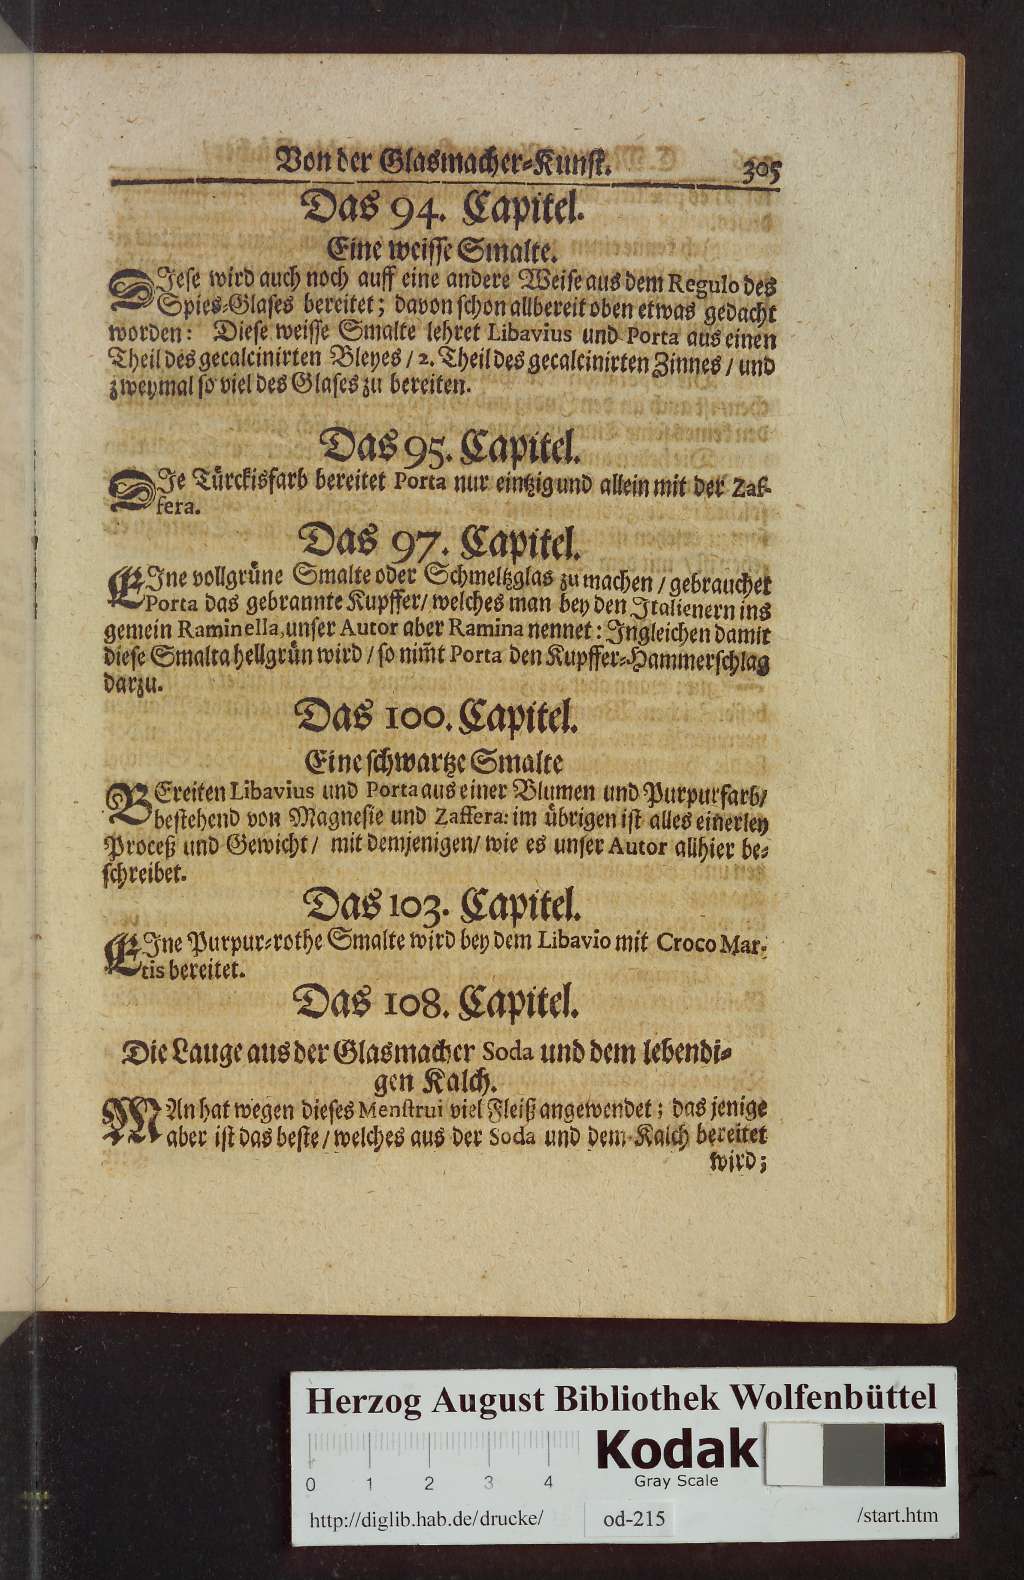 Von der Glasmacher-Kunst. 305
Das 94. Capitel.
Eine weisse Smalte.
DIese wird auch noch auff eine andere Weise aus dem Regulo des
Spies-Glases bereitet; davon schon allbereit oben etwas gedacht
worden: Diese weisse Smalte lehret Libavius und Porta aus einen
Theil des gecalcinirten Bleyes / 2. Theil des gecalcinirten Zinnes / und
zweymal so viel des Glases zu bereiten.
Das 95. Capitel.
DIe Türckisfarb bereitet Porta nur eintzig und allein mit der Zaf-
fera.
Das 97. Capitel.
EIne vollgrüne Smalte oder Schmeltzglas zu machen / gebrauchet
Porta das gebrannte Kupffer / welches man bey den Italienern ins
gemein Raminella, unser Autor aber Ramina nennet: Ingleichen damit
diese Smalta hellgrün wird / so nim̃t Porta den Kupffer-Hammerschlag
darzu.
Das 100. Capitel.
Eine schwartze Smalte
BEreiten Libavius und Porta aus einer Blumen und Purpurfarb /
bestehend von Magnesie und Zaffera: im übrigen ist alles einerley
Proceß und Gewicht / mit demjenigen / wie es unser Autor allhier be-
schreibet.
Das 103. Capitel.
EIne Purpur-rothe Smalte wird bey dem Libavio mit Croco Mar-
tis bereitet.
Das 108. Capitel.
Die Lauge aus der Glasmacher Soda und dem lebendi-
gen Kalch.
MAn hat wegen dieses Menstrui viel Fleiß angewendet; das jenige
aber ist das beste / welches aus der Soda und dem Kalch bereitet
wird;
Herzog August Bibliothek Wolfenbüttel
Kodak
Gray Scale
0 1 2 3 4
http://diglib.hab.de/drucke/ od-215 /start.htm